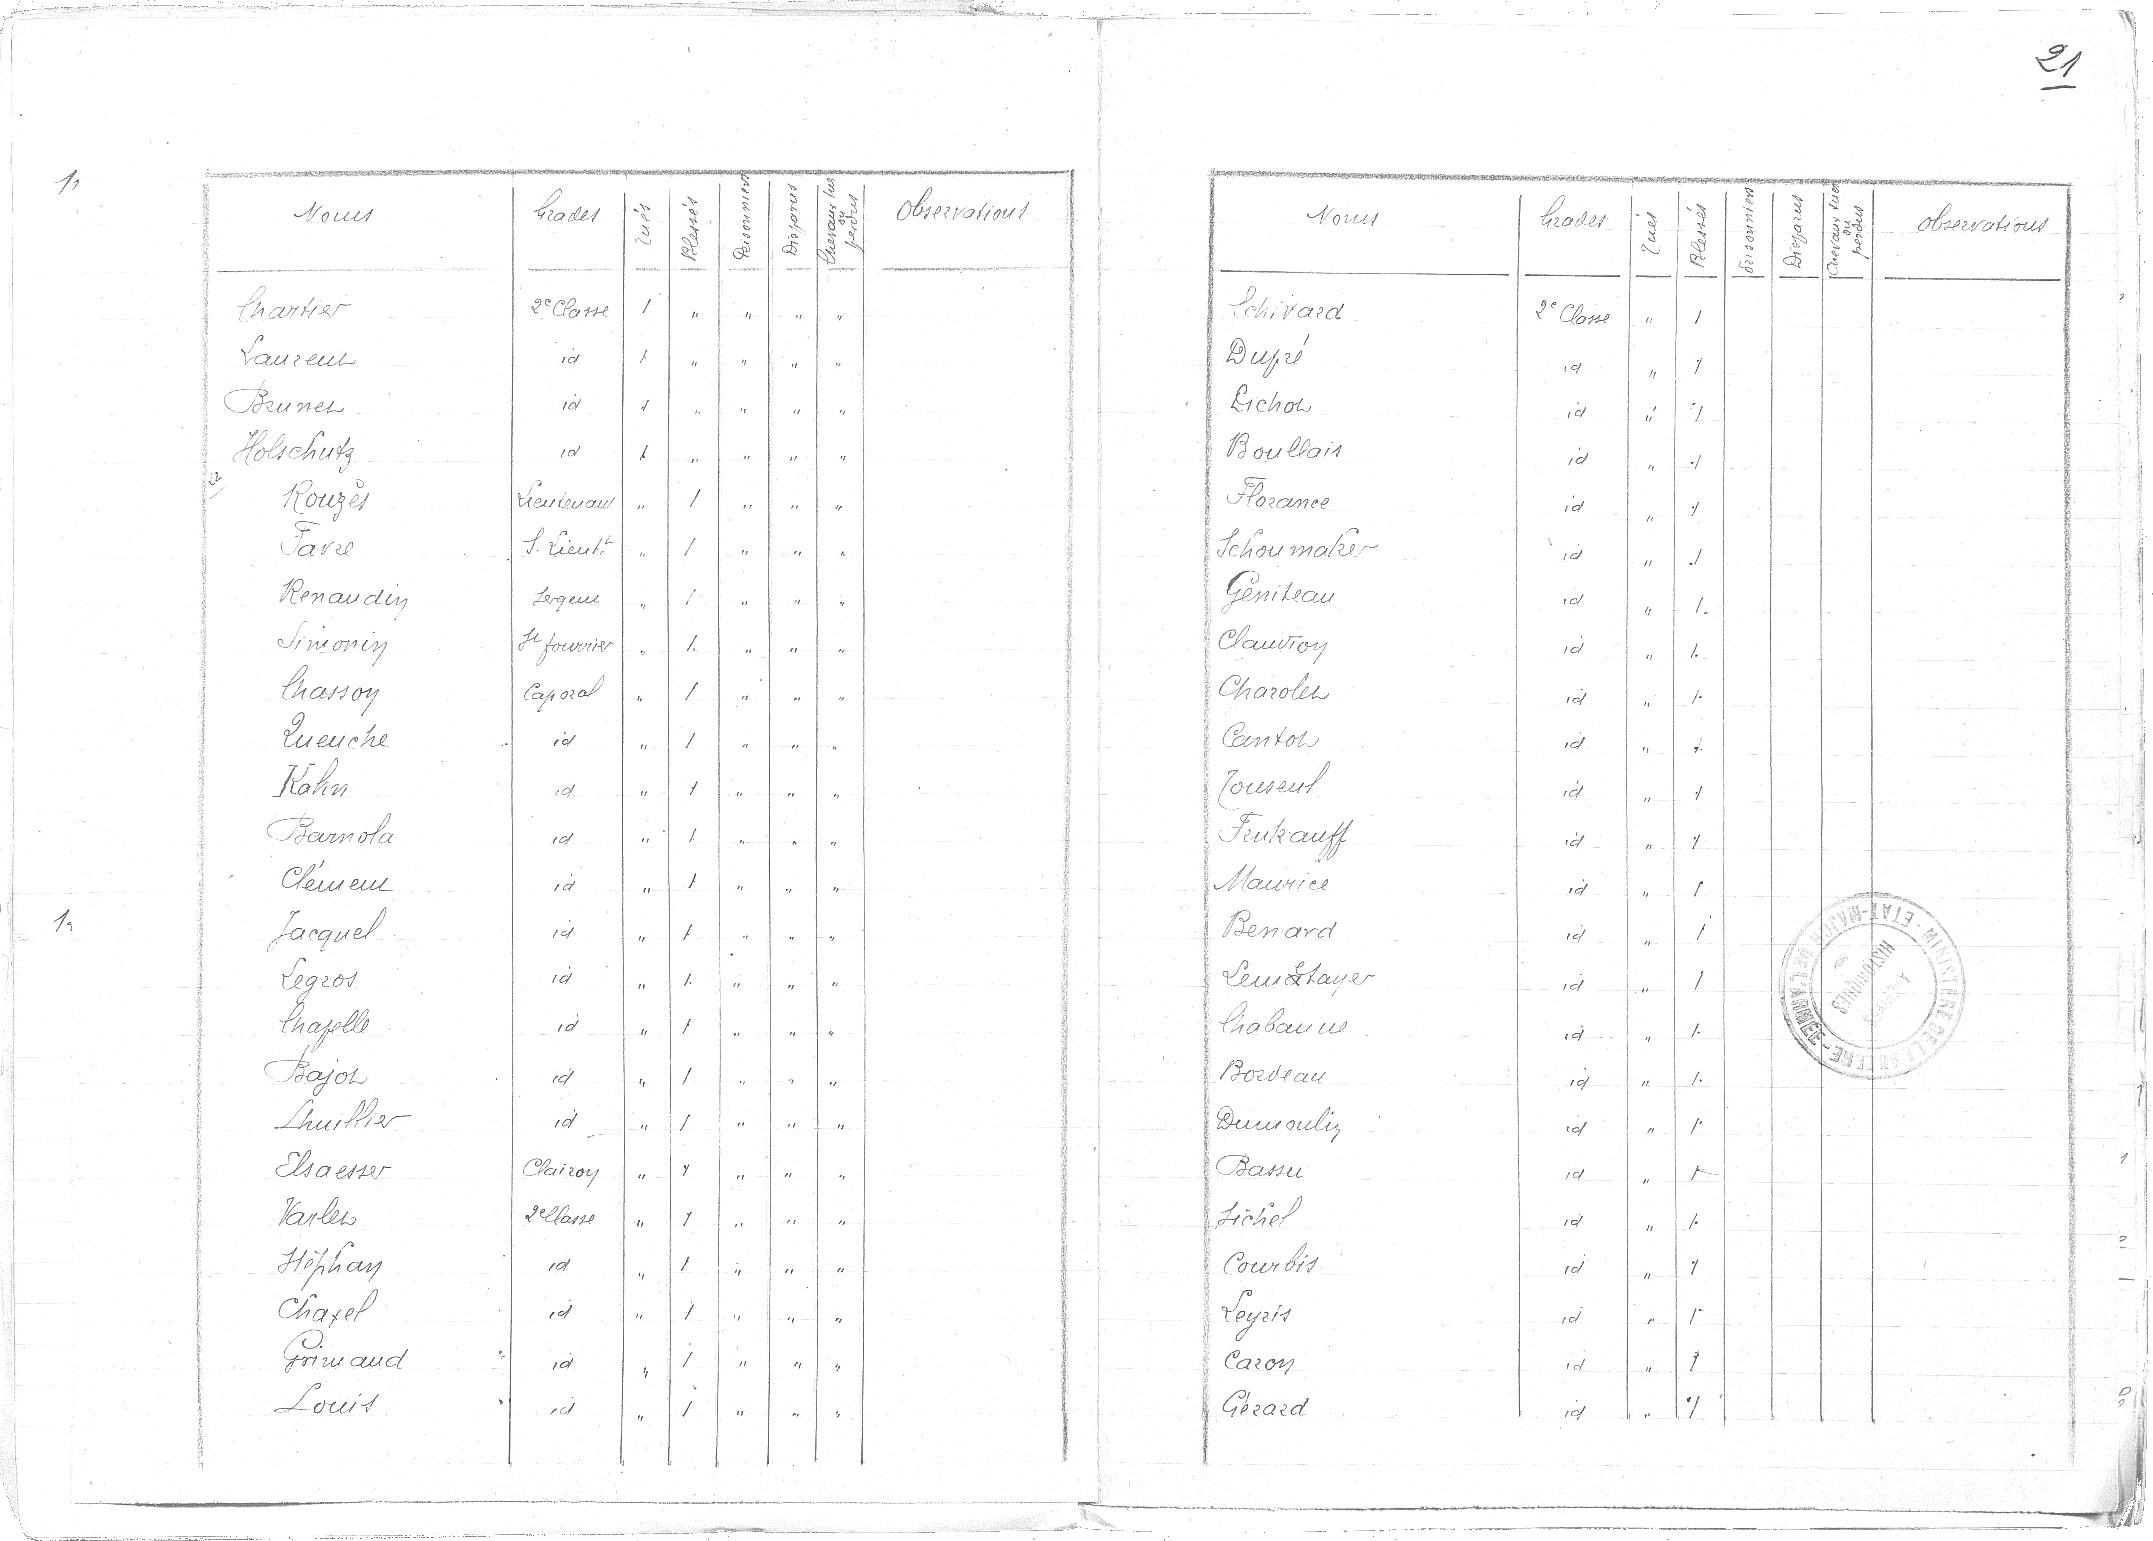 21
Noms Grades Tués Blessés Prisonniers Disparus Chevaux tués ou perdus Observations
Chartier 2e Classe 1 " " " "
Laurent id 1 " " " "
Brunet id 1 " " " "
Holschutz id 1 " " " "
Rouzès Lieutenant " 1 " " "
Favre S. Lieutt " 1 " " "
Renaudin Sergent " 1 " " "
Simonin St fourrier " 1 " " "
Chasson Caporal " 1 " " "
Queuche id " 1 " " "
Kahn id " 1 " " "
Barnola id " 1 " " "
Clément id " 1 " " "
Jacquel id " 1 " " "
Legros id " 1 " " "
Chapelle id " 1 " " "
Bajot id " 1 " " "
Lhuillier id " 1 " " "
Elsaesser Clairon " 1 " " "
Varlet 2e Classe " 1 " " "
Héphan id " 1 " " "
Chaxel id " 1 " " "
Grimaud id " 1 " " "
Louis id " 1 " " "
Noms Grades Tués Blessés Prisonniers Disparus Chevaux tués ou perdus Observations
Schivard 2e Classe " 1
Dupré id " 1
Lichot id " 1
Boullais id " 1
Florance id " 1
Schoumaker id " 1
Géniteau id " 1
Clauvion id " 1
Charolet id " 1
Cantot id " 1
Touseul id " 1
Frukauff id " 1
Maurice id " 1
Benard id " 1
id " 1
Chabanne id " 1
Bordeau id " 1
Dumoulin id " 1
Bassu id " 1
Sichel id " 1
Courbis id " 1
Leyris id " 1
Caron id " 1
Gérard id " 1
MINISTÈRE DE LA GUERRE - ETAT-MAJOR DE L'ARMÉE -
HISTORIQUES